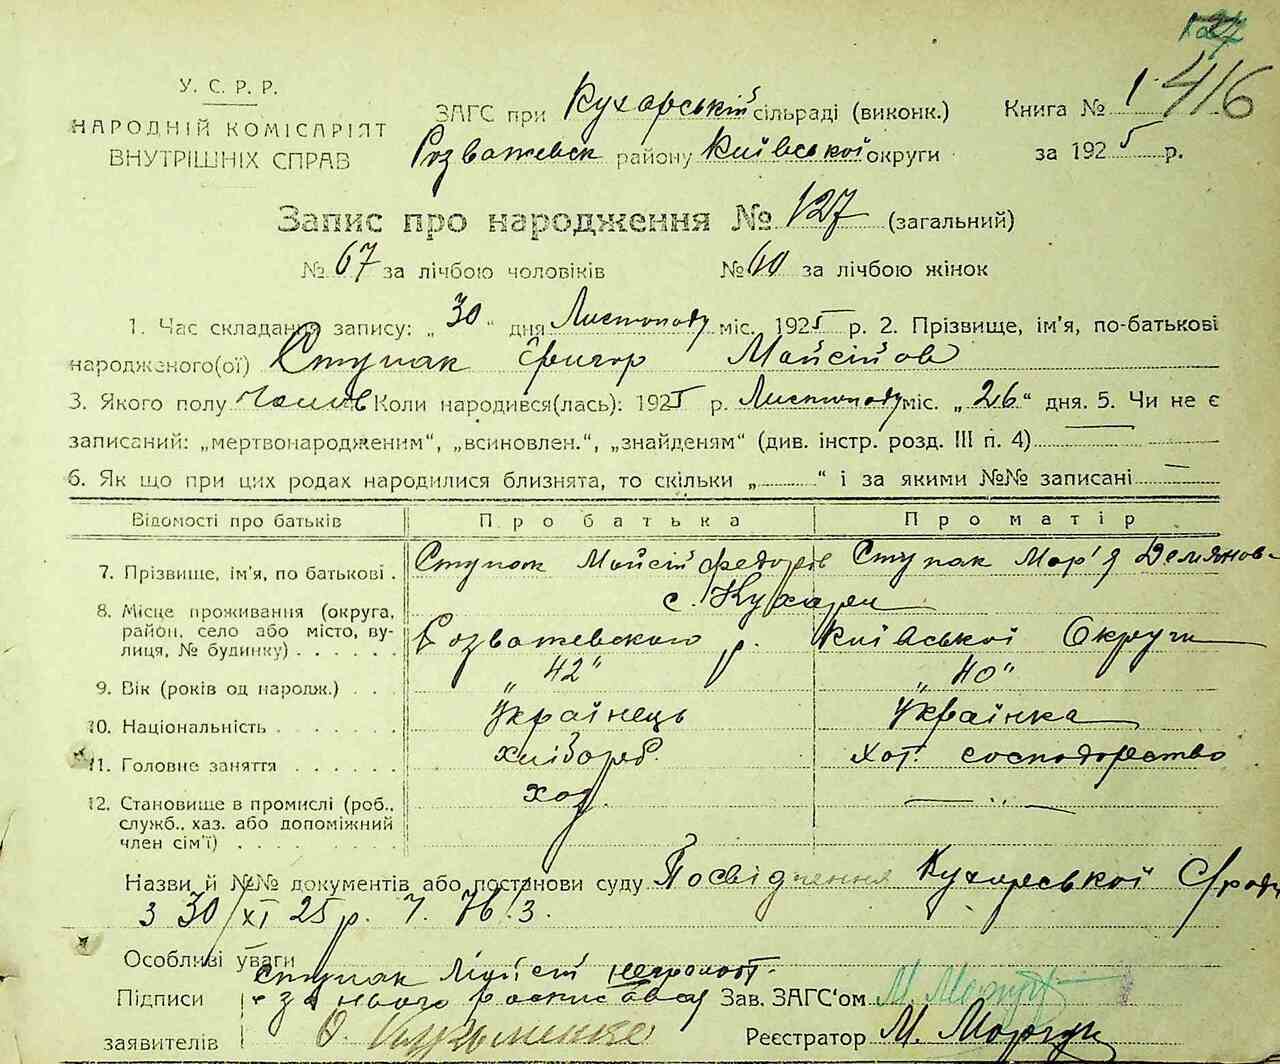 У. С. Р. Р.
НАРОДНІЙ КОМІСАРІЯТ
ВНУТРІШНІХ СПРАВ
ЗАГС при Кухарській сільраді (виконк.)
Розважевск району Київської округи
Книга № 1
416
за 1925 р.
Запис про народження № 127 (загальний)
№ 67 за лічбою чоловіків № 60 за лічбою жінок
1. Час складання запису: „30“ дня Листопаду міс. 1925 р. 2. Прізвище, ім'я, по-батькові
народженого(ої) Ступак Григор Мойсійов
3. Якого полу Чолов Коли народився(лась): 1925 р. Листопаду міс. „26“ дня. 5. Чи не є
записаний: „мертвонародженим“, „всиновлен.“, „знайденям“ (див. інстр. розд. III п. 4) —
6. Як що при цих родах народилися близнята, то скільки „ “ і за якими №№ записані —
Відомості про батьків Про батька Про матір
7. Прізвище, ім'я, по батькові . Ступак Мойсій Федорів Ступак Мар'я Демянов-
8. Місце проживання (округа, район, село або місто, вулиця, № будинку) . . . . . . с. Кухари
Розважевского р. Київської Округи
9. Вік (років од народж.) . . „42“ „40“
10. Національність . . . . . . . Українець Українка
11. Головне заняття . . . . . . хлібороб. хот. господорство
12. Становище в промислі (роб., служб., хаз. або допоміжний член сім'ї) . . . . . . . . хоз. — „ —
Назви й №№ документів або постанови суду Посвідчення Кухарської С/ради
з 30/XI 25 р. ч. 76/3.
Особливі уваги
Ступак Мойсій неграмот.
Підписи за нього росписався Зав. ЗАГС'ом
заявителів О. Кузьменко Реєстратор М.